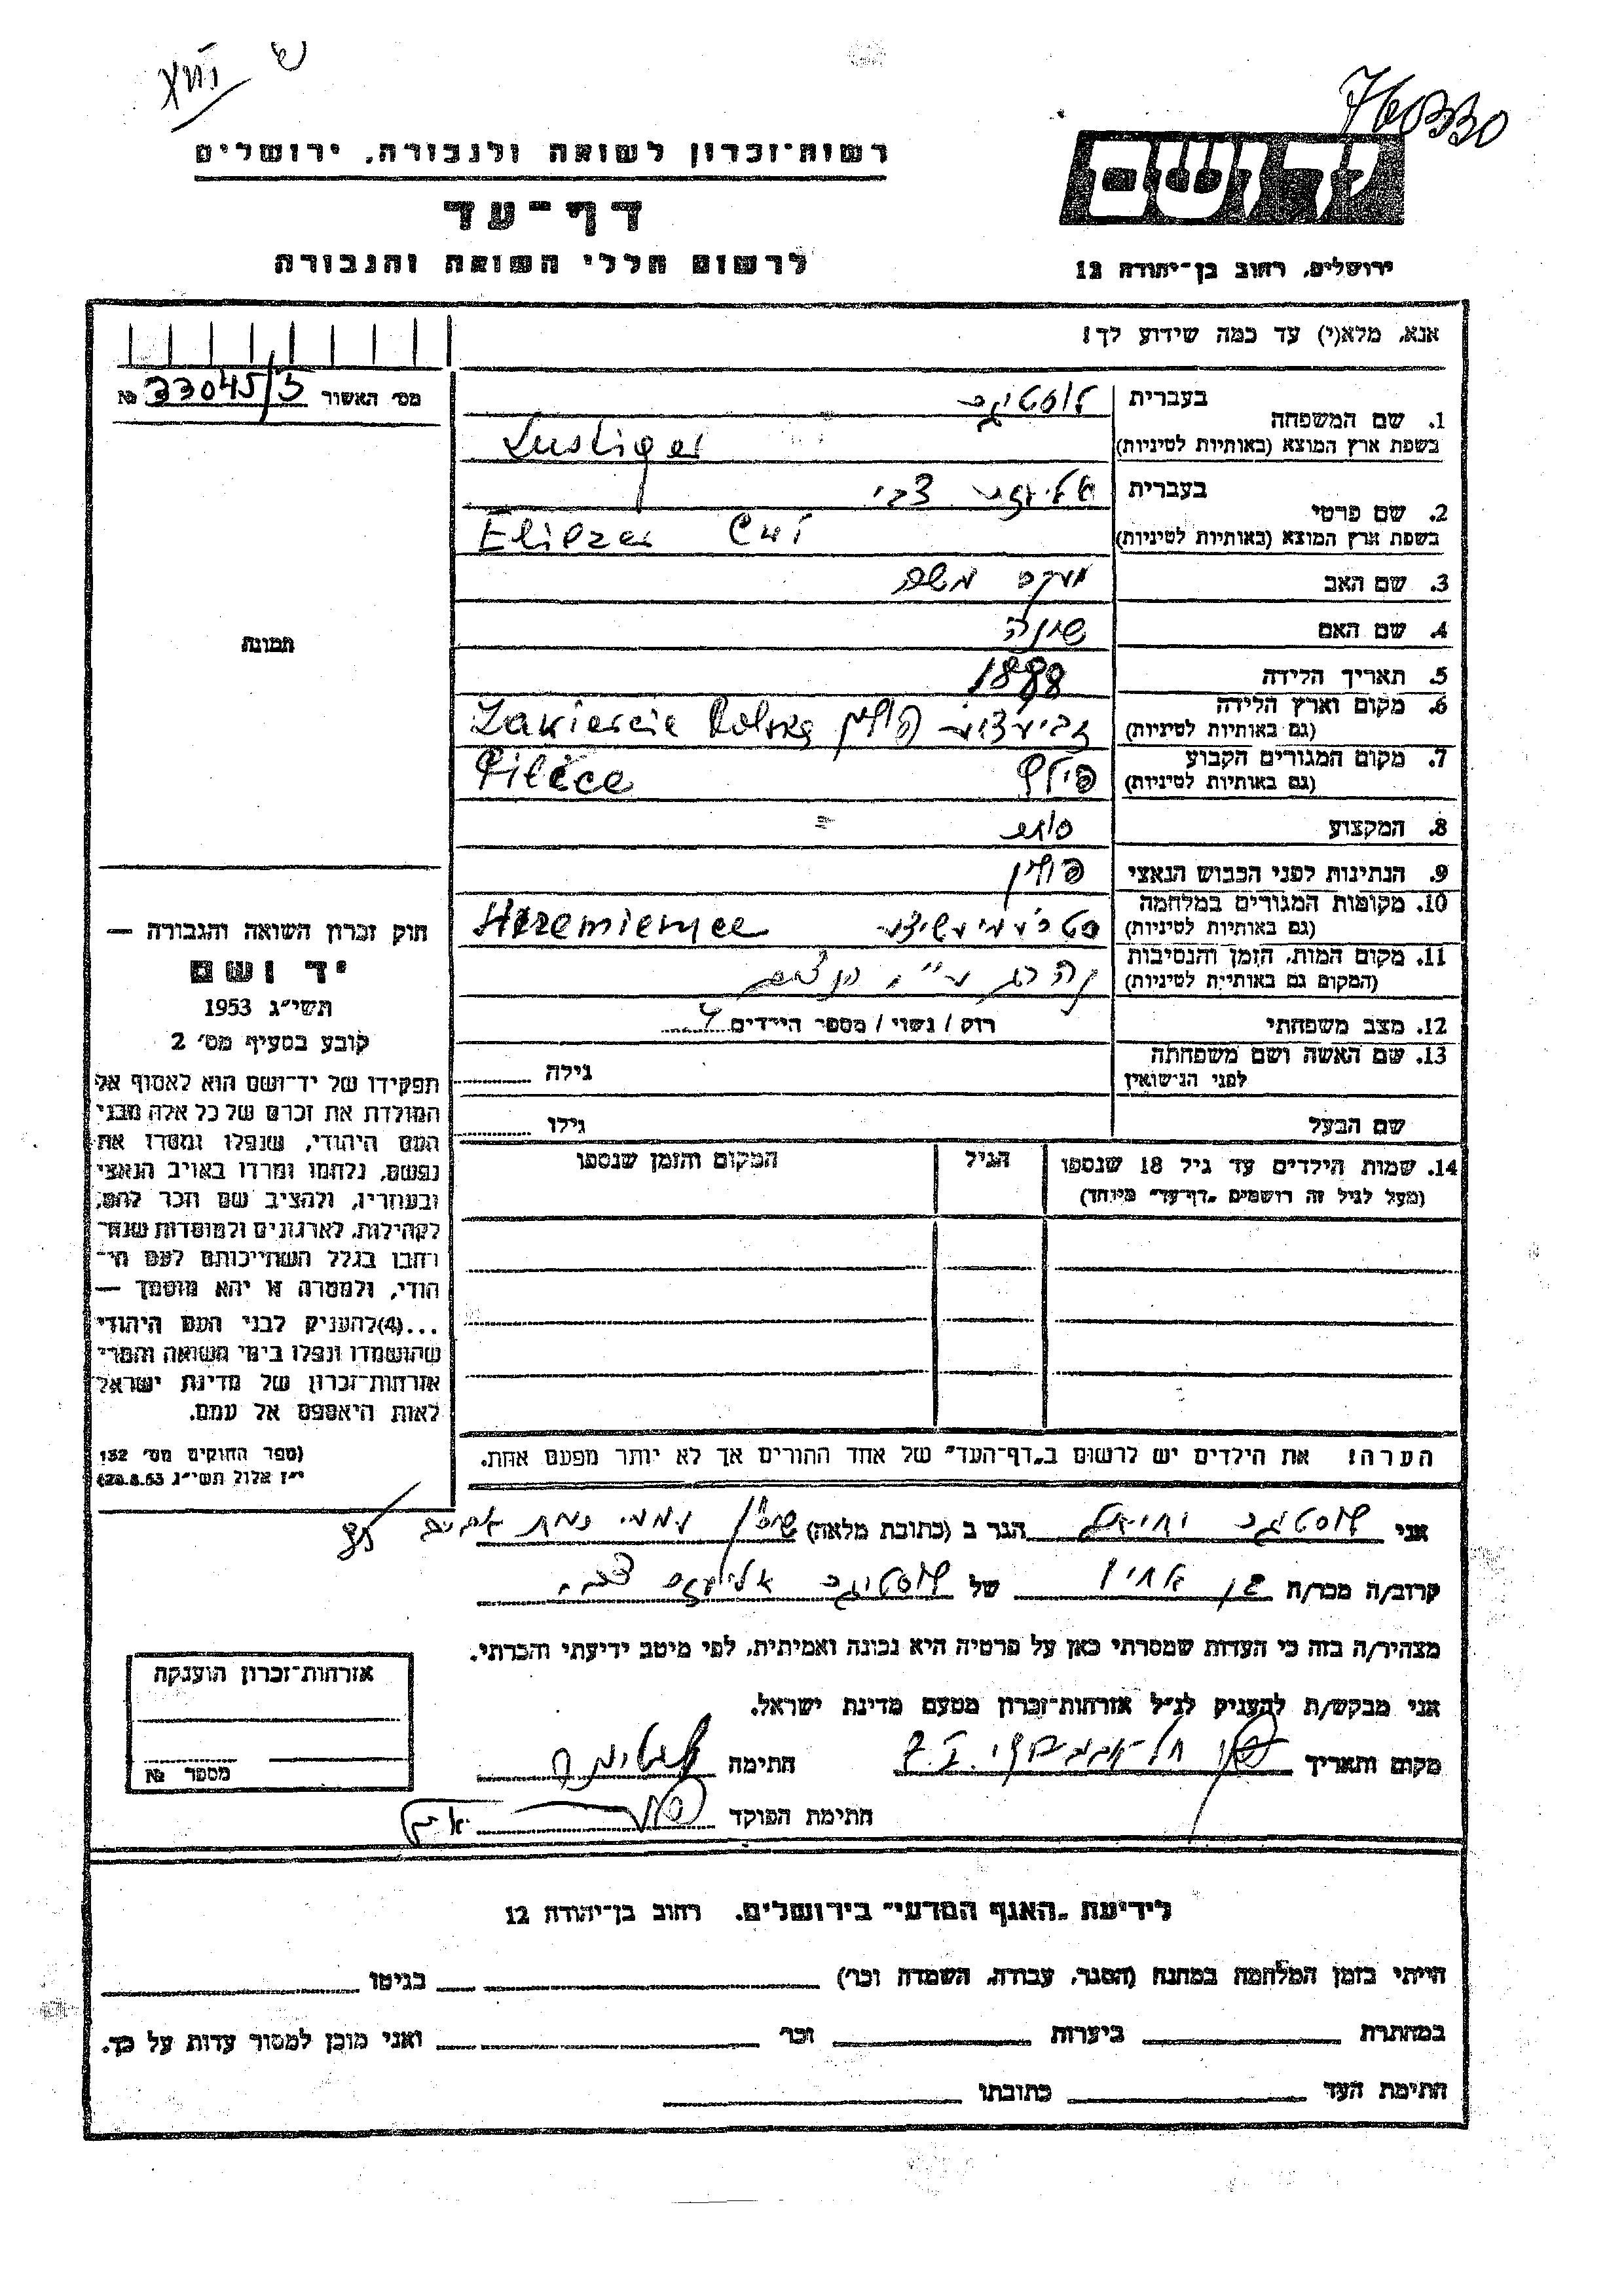 760330
רשות־זכרון לשואה ולגבורה, ירושלים
דף־עד
לרשום חללי השואה והגבורה
ירושלים, רחוב בן־יהודה 12
אנא, מלא(י) עד כמה שידוע לך!
מס׳ האשור 33045/5 №
1. שם המשפחה
בעברית לוסטיגר
בשפת ארץ המוצא (באותיות לטיניות) Lustiger
2. שם פרטי
בעברית אליעזר צבי
בשפת ארץ המוצא (באותיות לטיניות) Eliezer Cwi
3. שם האב משה
4. שם האם שינה
5. תאריך הלידה 1888
6. מקום וארץ הלידה פולין Polska
(גם באותיות לטיניות)
7. מקום המגורים הקבוע פילץ Pilece
(גם באותיות לטיניות)
8. המקצוע סוחר
9. הנתינות לפני הכבוש הנאצי פולין
10. מקומות המגורים במלחמה
(גם באותיות לטיניות)
11. מקום המות, הזמן והנסיבות נהרג ע״י הנאצים
(המקום גם באותיות לטיניות)
12. מצב משפחתי רוק / נשוי / מספר הילדים 4
13. שם האשה ושם משפחתה
לפני הנישואין
גילה
שם הבעל
גילו
14. שמות הילדים עד גיל 18 שנספו
(מעל לגיל זה רושמים „דף־עד” מיוחד)
הגיל
המקום והזמן שנספו
הערה! את הילדים יש לרשום ב„דף־העד” של אחד ההורים אך לא יותר מפעם אחת.
תמונה
חוק זכרון השואה והגבורה —
יד ושם
תשי״ג 1953
קובע בסעיף מס׳ 2
תפקידו של יד־ושם הוא לאסוף אל
המולדת את זכרם של כל אלה מבני
העם היהודי, שנפלו ומסרו את
נפשם, נלחמו ומרדו באויב הנאצי
ובעוזריו, ולהציב שם וזכר להם,
לקהילות, לארגונים ולמוסדות שנח־
רחבו בגלל השתייכותם לעם הי־
הודי, ולמטרה זו יהא מוסמך —
...(4)להעניק לבני העם היהודי
שהושמדו ונפלו בימי השואה והמרי
אזרחות־זכרון של מדינת ישראל
לאות היאספם אל עמם.
(ספר החוקים מס׳ 132
י״ז אלול תשי״ג 28.8.53)
אני לוסטיגר יחיאל הגר ב (כתובת מלאה)
קרוב/ה מכר/ה בן אחיו של לוסטיגר אליעזר צבי
מצהיר/ה בזה כי העדות שמסרתי כאן על פרטיה היא נכונה ואמיתית, לפי מיטב ידיעתי והכרתי.
אני מבקש/ת להעניק לנ״ל אזרחות־זכרון מטעם מדינת ישראל.
מקום ותאריך
חתימה
חתימת הפוקד
אזרחות־זכרון הוענקה
מספר №
לידיעת „האגף המדעי” בירושלים, רחוב בן־יהודה 12
הייתי בזמן המלחמה במחנה (הסגר, עבודה, השמדה וכו׳) בגיטו
במחתרת ביערות וכו׳ ואני מוכן למסור עדות על כך.
חתימת העד כתובתו